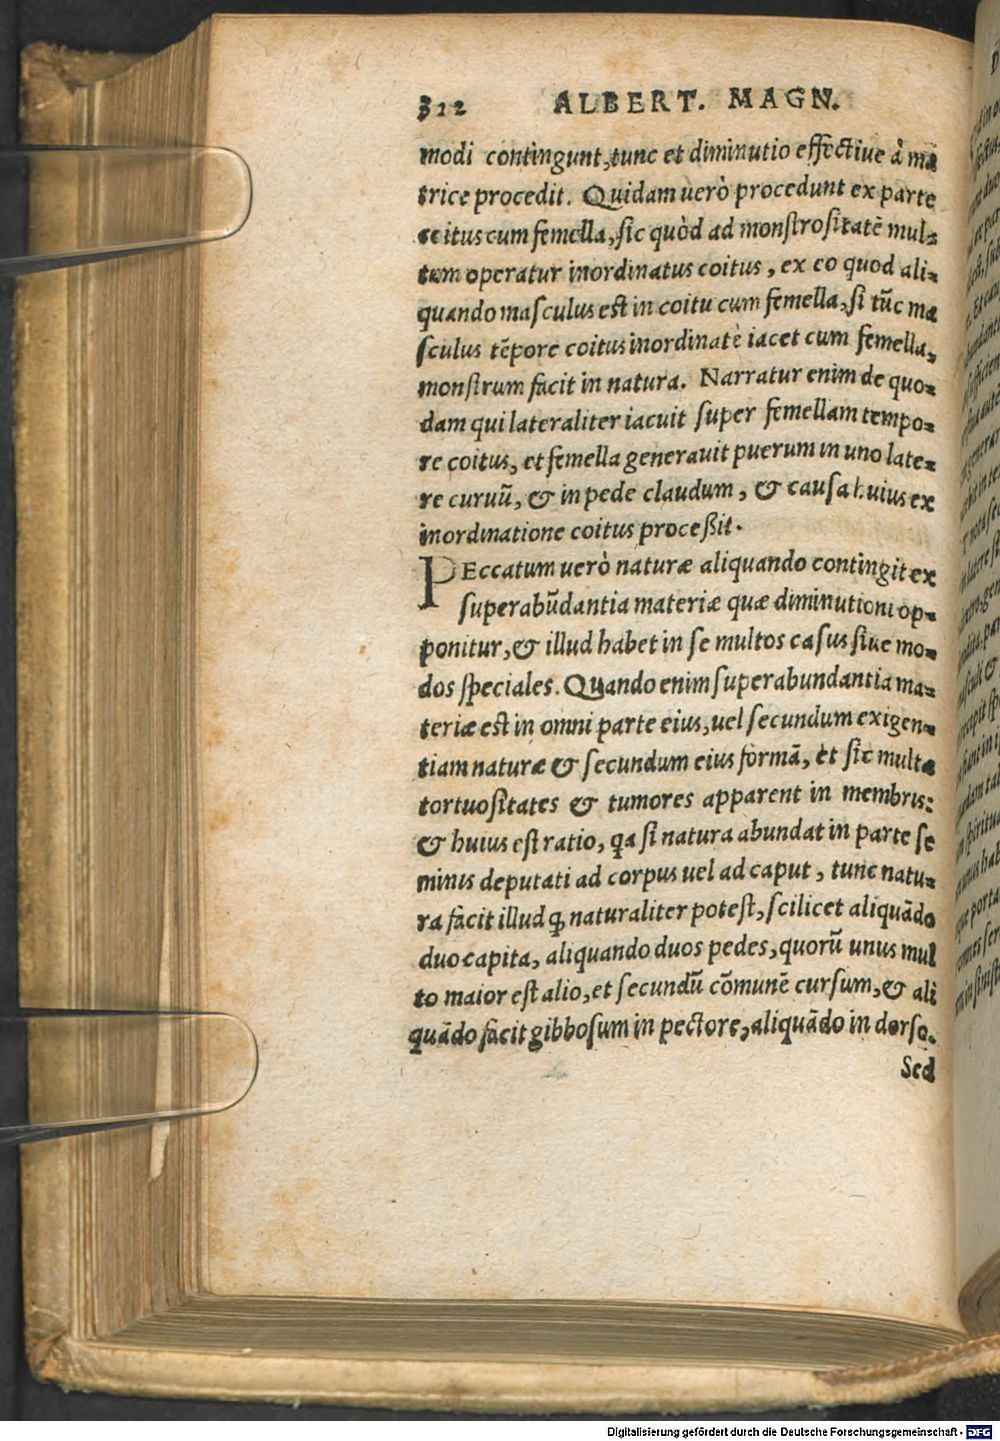 312 ALBERT. MAGN.
modi contingunt, tunc et diminutio effectiue à mã
trice procedit. Quidam uerò procedunt ex parte
coitus cum femella, sic quòd ad monſtroſitatẽ mul⸗
tum operatur inordinatus coitus, ex eo quod ali⸗
quando maſculus eſt in coitu cum femella, ſi tũc ma
ſculus tẽpore coitus inordinatè iacet cum femella,
monſtrum facit in natura. Narratur enim de quo⸗
dam qui lateraliter iacuit ſuper femellam tempo⸗
re coitus, et femella generauit puerum in uno late⸗
re curuũ, & in pede claudum, & cauſa huius ex
inordinatione coitus proceßit.
PEccatum uerò naturæ aliquando contingit ex
ſuperabũdantia materiæ quæ diminutioni op⸗
ponitur, & illud habet in ſe multos caſus ſiue mo⸗
dos ſpeciales. Quando enim ſuperabundantia ma⸗
teriæ eſt in omni parte eius, uel ſecundum exigen⸗
tiam naturæ & ſecundum eius formã, et ſic multæ
tortuoſitates & tumores apparent in membris:
& huius eſt ratio, qa ſi natura abundat in parte ſe
minis deputati ad corpus uel ad caput, tunc natu⸗
ra facit illud ꝙ naturaliter poteſt, ſcilicet aliquãdo
duo capita, aliquando duos pedes, quorũ unus mul
to maior eſt alio, et ſecundũ cõmunẽ curſum, & ali
quãdo facit gibboſum in pectore, aliquãdo in dorſo.
Sed
Digitalisierung gefördert durch die Deutsche Forschungsgemeinschaft - DFG